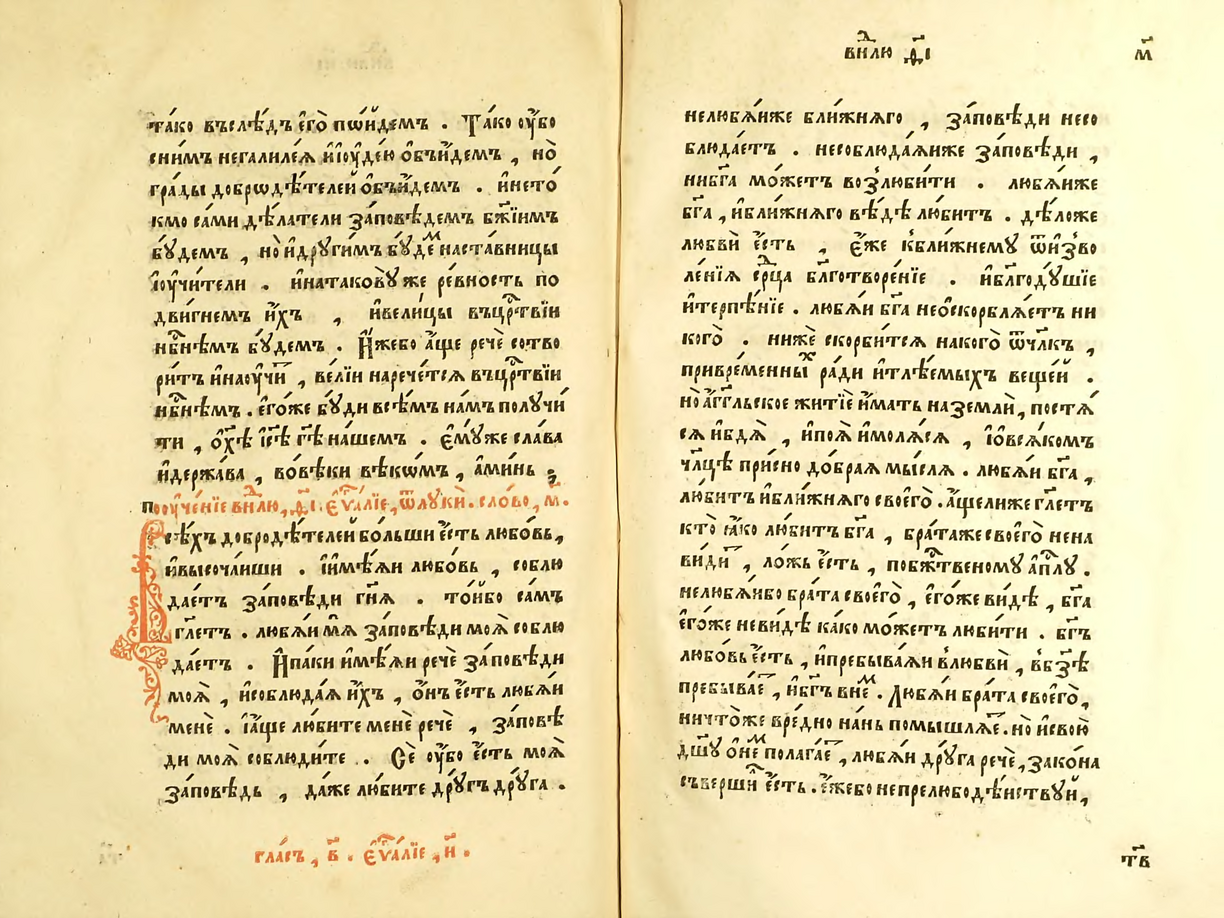 та́ко въслѣ́дъ є҆гѡ̀ пѡ́йдемъ . Та́ко ᲂу҆́бо
сни́мъ негалиле́ѧ и҆і҆ꙋде́ю ѻ҆бъи́демъ , но̀
гра́ды добрѡдѣ́телей ѻ҆бъи́демъ . и҆нето́
кмо са́ми дѣ́латели за́повѣдемъ бж҃їимъ
бꙋ́демъ , но̀ и҆дрꙋги́мъ бꙋ́деⷨ наста́вницы
и҆ᲂу҆чи́тели . и҆натакову́же ре́вность по
дви́гнемъ и҆́хъ , и҆вели́цы въцр҃твїи
нб҃нѣмъ бꙋ́демъ . И҆́жебо а҆́ще речѐ сотво
ри́тъ и҆наᲂу҆чи́ , ве́лїи нарече́тсѧ въцр҃твїи
нб҃нѣмъ . є҆го́же бꙋ́ди всѣ́мъ на́мъ полꙋчи́
ти , ѻ҆хр҃ѣ і҆с҃ѣ гд҃ѣ на́шемъ . є҆мꙋ́же сла́ва
и҆держа́ва , во́вѣки вѣкѡ́мъ , а҆ми́нь ⁏
Поᲂу҆че́нїе внⷣлю , д҃і . є҆ѵⷢ҇алїе , ѿлꙋки̂ . сло́во , м҃ .
Всѣ́хъ добродѣ́телей бо́льши є҆́сть любо́вь ,
и҆высоча́иши . и҆и҆мѣ́ѧи любо́вь , соблю
да́етъ за́повѣди гн҃ѧ . то́йбо са́мъ
гл҃етъ . любѧ́и мѧ̀ за́повѣди моѧ̀ соблю
да́етъ . И҆па́ки и҆мѣ́ѧи речѐ за́повѣди
моѧ̀ , и҆соблюда́ѧ и҆́хъ , ѻ҆́нъ є҆́сть любѧ́и
менѐ . и҆а҆́ще лю́бите менѐ речѐ , за́повѣ
ди моѧ̀ соблюди́те . Сѐ ᲂу҆́бо є҆́сть моѧ̀
за́повѣдь , да́же лю́бите дрꙋ́гъ дрꙋ́га .
гла́съ , в҃ . є҆ѵⷢ҇алїе , н҃ .
внⷣлю д҃і
м҃
нелюбѧ́иже бли́жнѧго , за́повѣди несо
блюда́етъ . несоблюда́ѧиже за́повѣди ,
нибг҃а мо́жетъ возлюби́ти . любѧ́иже
бг҃а , и҆бли́жнѧго вѣ́дѣ лю́битъ . дѣ́ложе
любвѝ є҆́сть , є҆́же кбли́жнемꙋ ѿи҆зво
ле́нїѧ срⷣца бл҃готворе́нїе . и҆бл҃годꙋ́шїе
и҆терпѣ́нїе . любѧ́и бг҃а неѡ҆скорблѧ́етъ ни
кого̀ . нижѐ скорби́тсѧ нако́го ѿчл҃къ ,
привре́менныⷯ ра́ди и҆тлѣ́емыхъ веще́й .
но̀ а҆́гг҃льское житїѐ и҆́мать на́земли , постѧ́
сѧ и҆бдѧ̀ , и҆поѧ̀ и҆молѧ́сѧ , і҆ѡ҆всѧ́комъ
чл҃цѣ при́сно до́браѧ мы́слѧ . любѧ́и бг҃а ,
лю́битъ и҆бли́жнѧго своего̀ . а҆́щелиже гл҃етъ
кто̀ ꙗ҆́ко лю́битъ бг҃а , бра́таже своего̀ нена
ви́ди , ло́жь є҆́сть , побж҃твеномꙋ а҆пⷭ҇лꙋ .
нелюбѧ́ибо бра́та своего̀ , є҆го́же ви́дѣ , бг҃а
є҆го́же неви́дѣ ка́ко мо́жетъ люби́ти . бг҃ъ
любо́вь є҆́сть , и҆пребыва́ѧи влюбвѝ , вбз҃ѣ
пребыва́е , и҆бг҃ъ внеⷨ . Любѧ́и бра́та своего̀ ,
ничто́же вре́дно на́нь помышлѧ́е . но̀ и҆свою̀
дш҃ꙋ ѡ҆неⷨ полага́е , любѧ́и дрꙋ́га речѐ , зако́на
съверши́ є҆́сть . є҆́жебо непрелюбодѣ́йствꙋй ,
тв҃